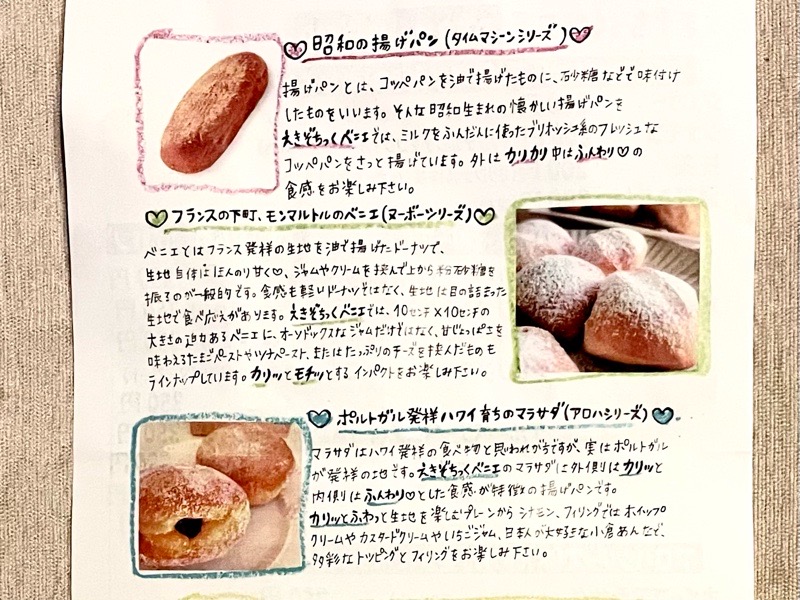 昭和の揚げパン(タイムマシーンシリーズ)
揚げパンとは、コッペパンを油で揚げたものに、砂糖などで味付け
したものをいいます。そんな昭和生まれの懐かしい揚げパンを
えきぞちっくベニエでは、ミルクをふんだんに使ったブリオッシュ系のフレッシュな
コッペパンをさっと揚げています。外はカリカリ中はふんわり♡の
食感をお楽しみ下さい。
フランスの下町、モンマルトルのベニエ(ヌーボーシリーズ)
ベニエとはフランス発祥の生地を油で揚げたドーナツで、
生地自体はほんのり甘く♡、ジャムやクリームを挟んで上から粉砂糖を
振るのが一般的です。食感も軽いドーナツではなく、生地は目の詰まった
生地で食べ応えがあります。えきぞちっくベニエでは、10センチ×10センチの
大きさの迫力あるベニエに、オーソドックスなジャムだけではなく、甘じょっぱさを
味わえるたまごペーストやツナペースト、またはたっぷりのチーズを挟んだものも
ラインナップしています。カリッとモチッとする インパクトをお楽しみ下さい。
ポルトガル発祥ハワイ育ちのマラサダ(アロハシリーズ)
マラサダはハワイ発祥の食べ物と思われがちですが、実はポルトガル
が発祥の地です。えきぞちっくベニエのマラサダは外側はカリッと
内側はふんわり♡とした食感が特徴の揚げパンです。
カリッとふわっと生地を楽しむプレーンからシナモン、フィリングではホイップ
クリームやカスタードクリームやいちごジャム、日本人が大好きな小倉あんなど、
多彩なトッピングとフィリングをお楽しみ下さい。